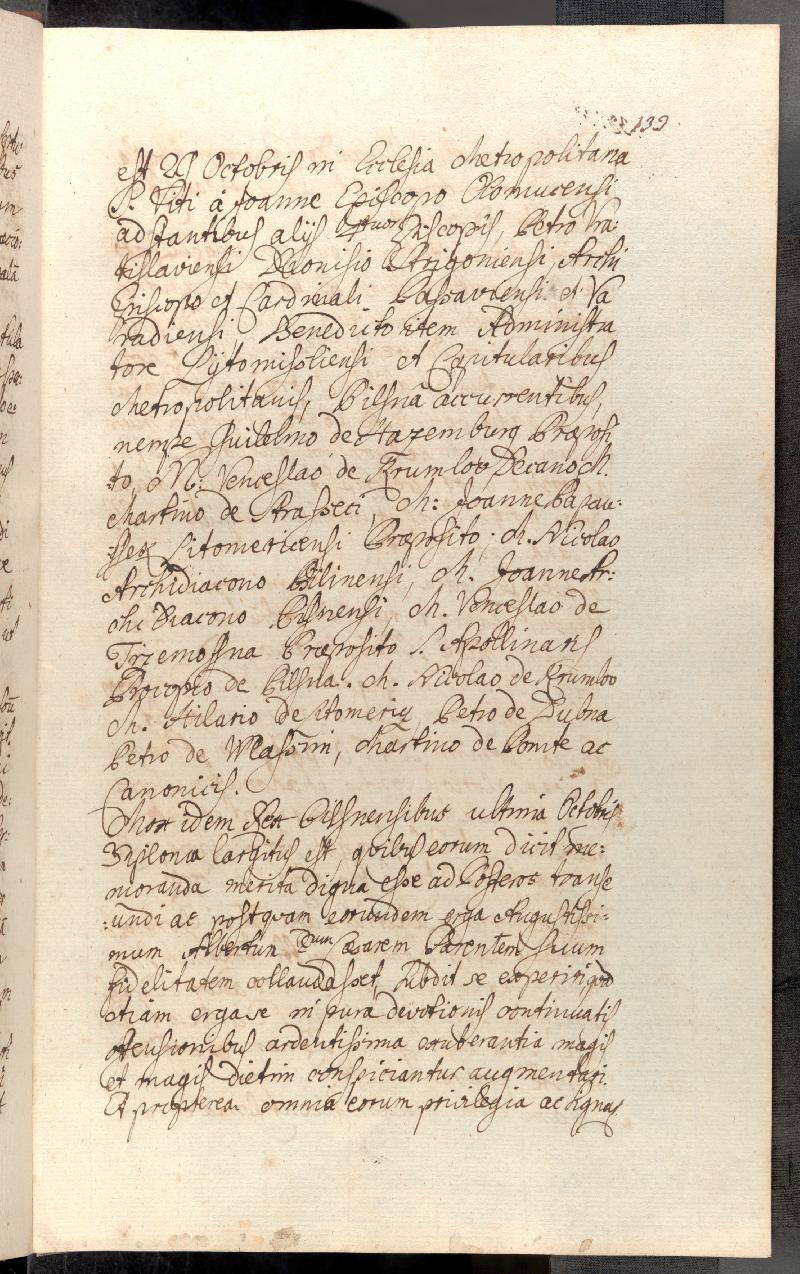 139
est 28 Octobris in Ecclesia Metropolitana
S. Viti á Joanne Episcopo Olomucensi
adstantibus alijs Episcopis, Petro Vra:
tislaviensi Dionisio Strigoniensi, Archi
Episcopo et Cardinali Passaviensi et Va
radiensi, Benedicto item Administra
tore Lytomissliensi et Capitularibus
Metropolitanis, Pilsnã accurrentibus,
nempe Guilelmo de Hazemburg Præposi
:to, M: Venceslao de Krumlov Decano M.
Martino de Strasseci, M: Joanne
Litomericensi Præposito; M. Nicolao
Archidiacono Bilinensi, M. Joanne Ar:
chi Diacono Pilsnensi, M. Venceslao de
Trzemossna Præposito S. Apollinaris
Procopio de Pilsna. M. Nicolao de Krumlvo
M. Hilario de Litomericz, Petro de Dubna
Petro de Wlassim, Martino de Ponte ac
Canonicis.
Mox idem Rex Pilsnensibus ultima Octobris
Insignia largitus est, quibus eorum dicit me:
moranda merita digna esse ad Posteros transe
:undi ac postquam eorundem erga Augustissi:
mum Albertum 2dum Cæsarem Parentem Suum
fidelitatem collaudasset, subdit se experiri quod
etiam erga se in pura devotionis continuatis
ostensionibus ardentissima exuberantia magis
et magis dietim conspiciantur augmentari.
Et propterea omnia eorum privilegia ac signa